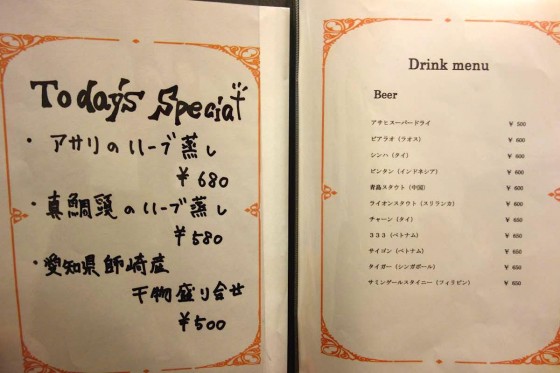 Today's Special
・アサリのハーブ蒸し
¥680
・真鯛頭のハーブ蒸し
¥580
・愛知県師崎産
干物盛り合せ
¥500
Drink menu
Beer
アサヒスーパードライ ¥ 500
ビアラオ（ラオス） ¥ 600
シンハ（タイ） ¥ 600
ビンタン（インドネシア） ¥ 600
青島スタウト（中国） ¥ 600
ライオンスタウト（スリランカ） ¥ 600
チャーン（タイ） ¥ 650
３３３（ベトナム） ¥ 650
サイゴン（ベトナム） ¥ 650
タイガー（シンガポール） ¥ 650
サミンゲールスタイニー（フィリピン） ¥ 650